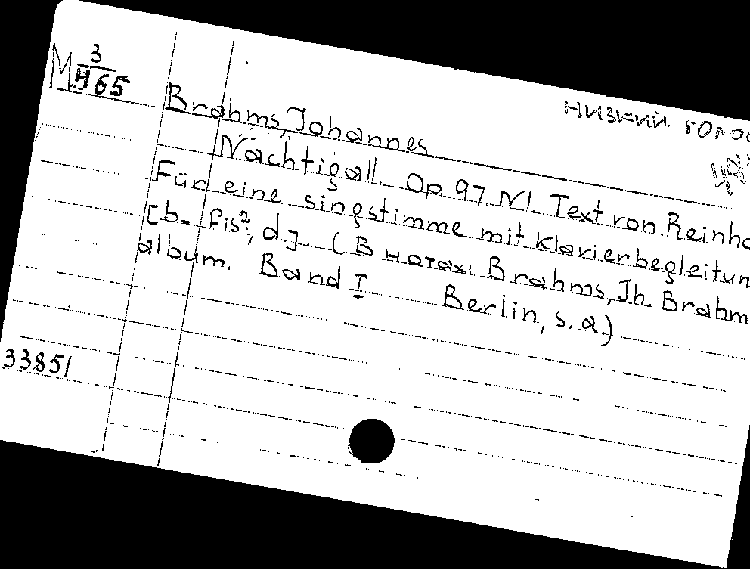 М 3
Н 65
низкий голос
Brahms, Johannes
Nachtigall. Op. 97 N1. Text von Reinho
Für eine singstimme mit Klavierbegleitun
[b - fis², d.] (В нотах: Brahms, Jh. Brahm
album. Band I Berlin, s.a.)
33851